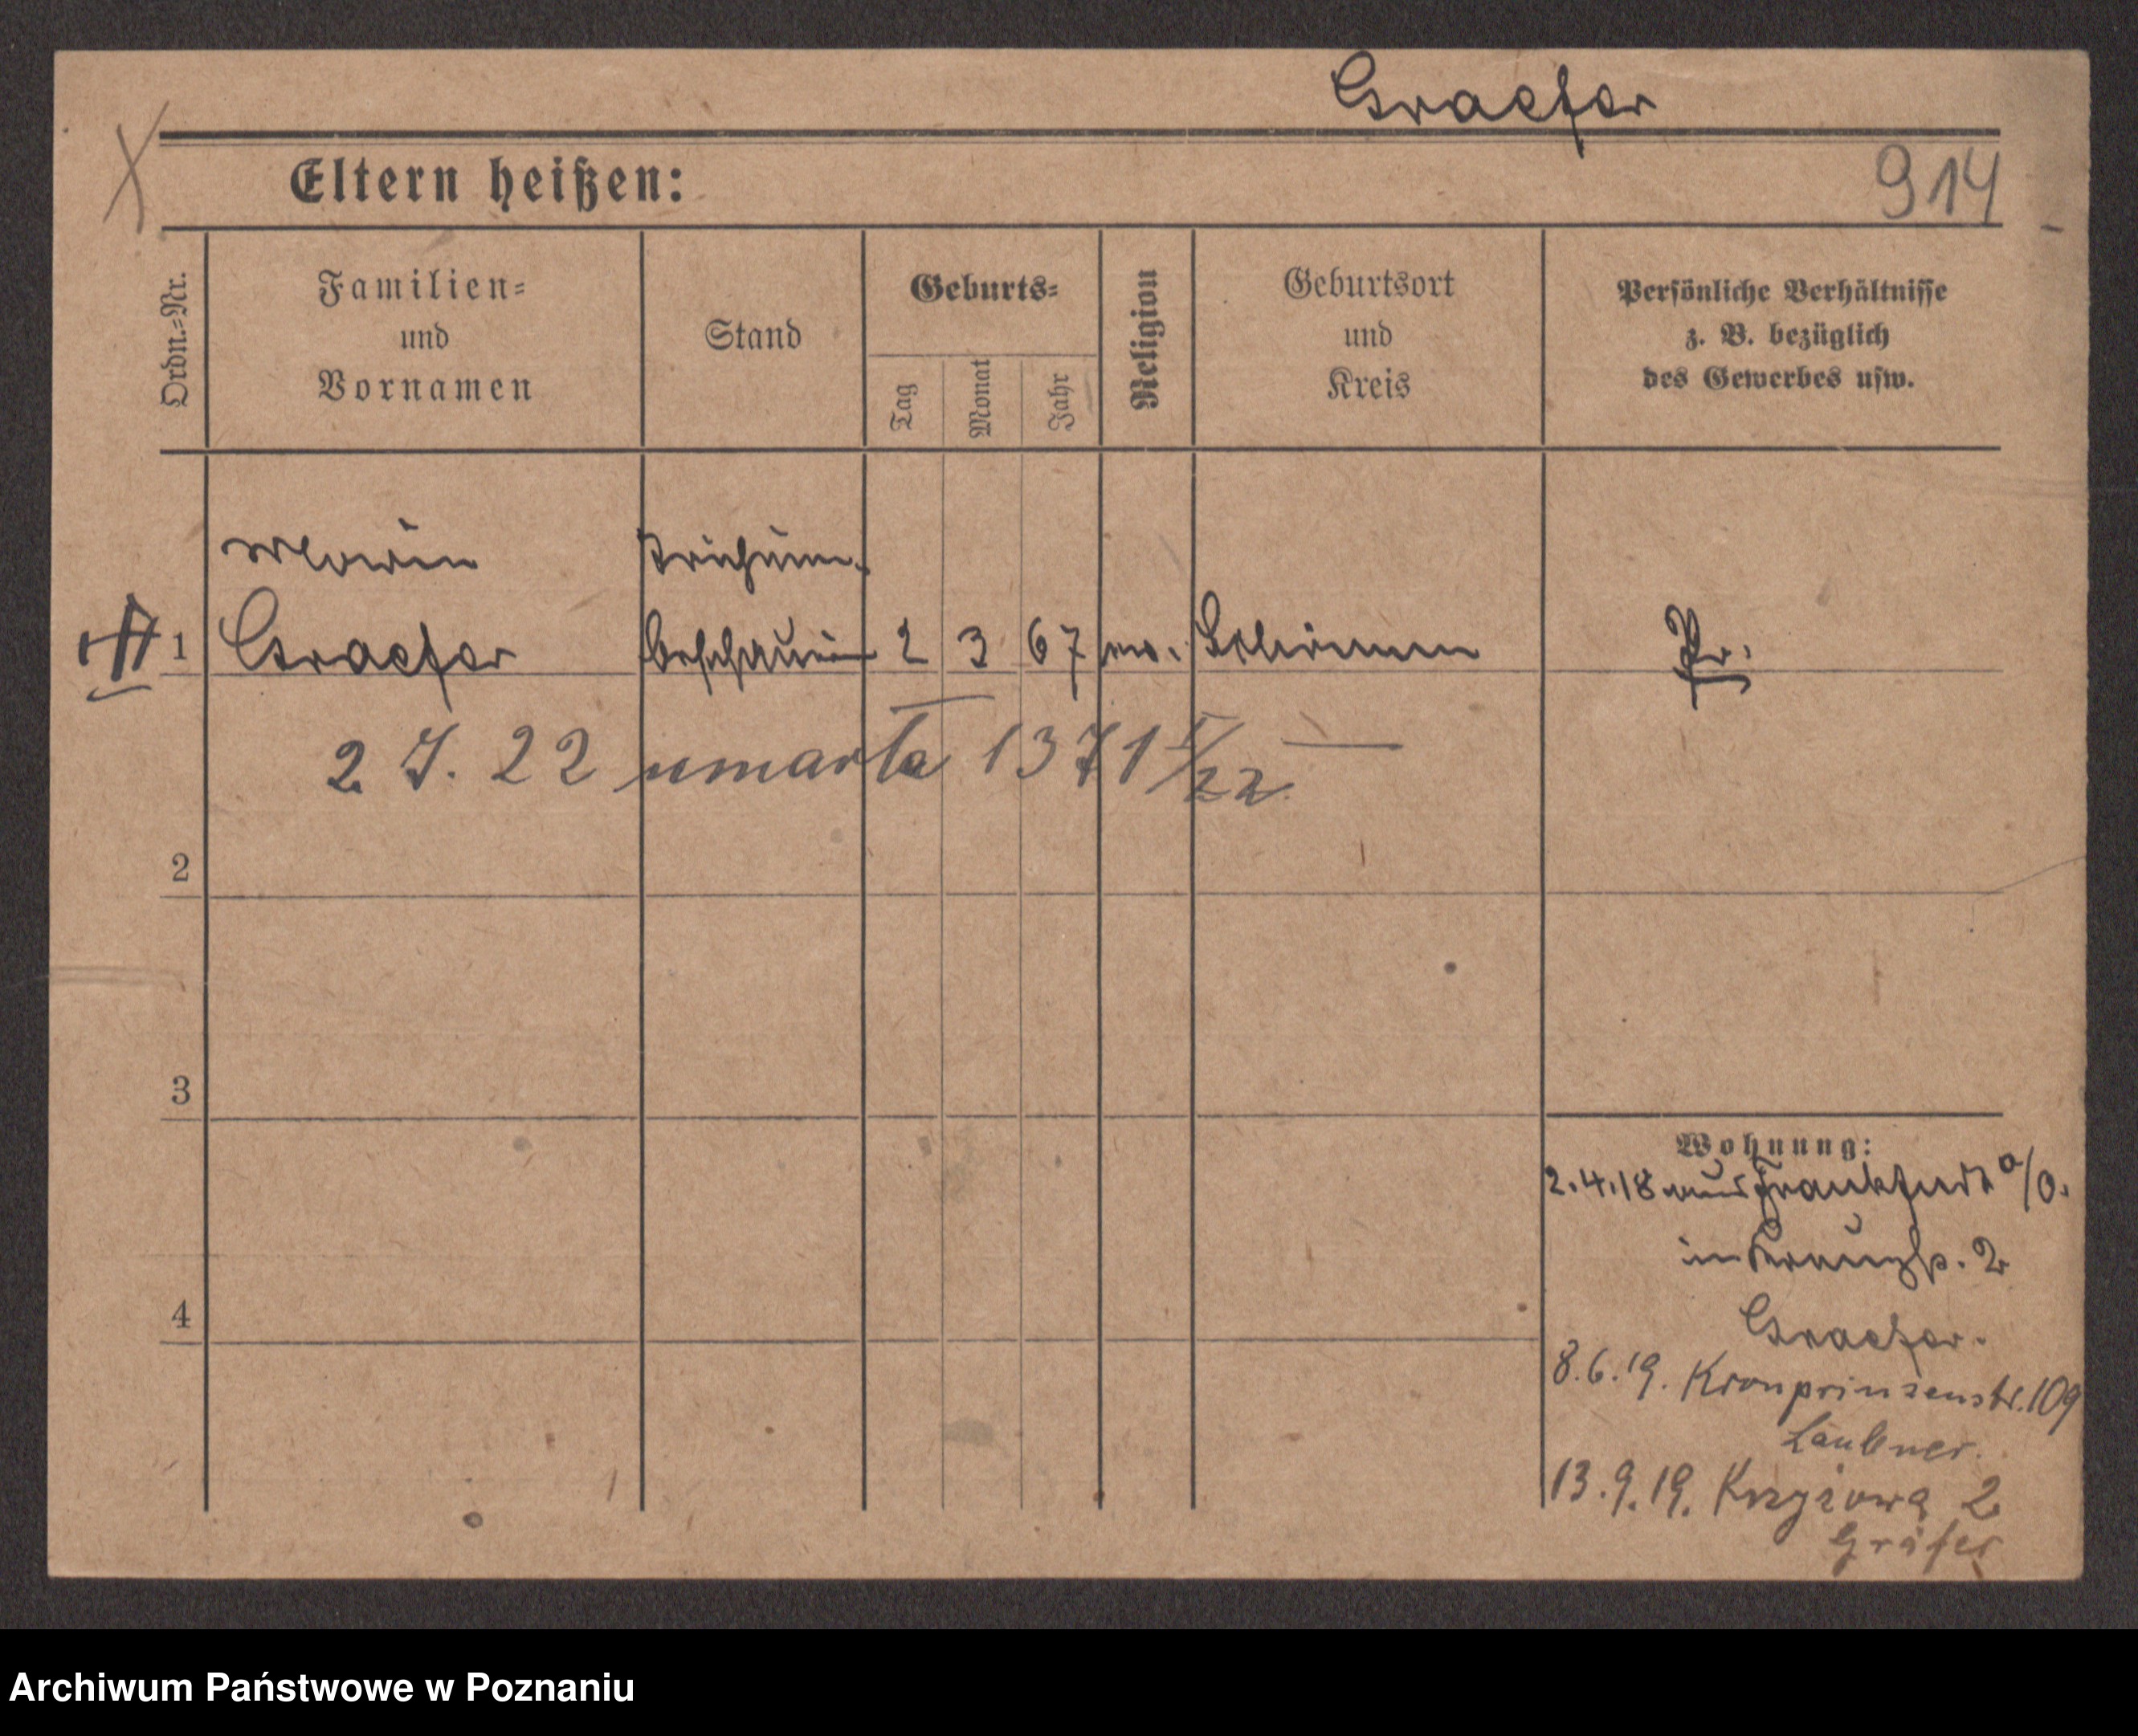 Graefer
Eltern heißen:
914
Ordn.-Nr.
Familien-
und
Vornamen
Stand
Geburts-
Tag
Monat
Jahr
Religion
Geburtsort
und
Kreis
Persönliche Verhältnisse
z. B. bezüglich
des Gewerbes usw.
Trichinen-
1 Graefer beschauerin 2 3 67 ev. Pr.
2 I. 22 umarła 1371 I/22
2
3
4
Wohnung:
2.4.18 aus Frankfurt a/O.
in Kreuzstr. 2
Graefer.
8.6.19. Kronprinzenstr. 109
Laubner.
13.9.19. Krzyżowa 2
Gräfer
Archiwum Państwowe w Poznaniu